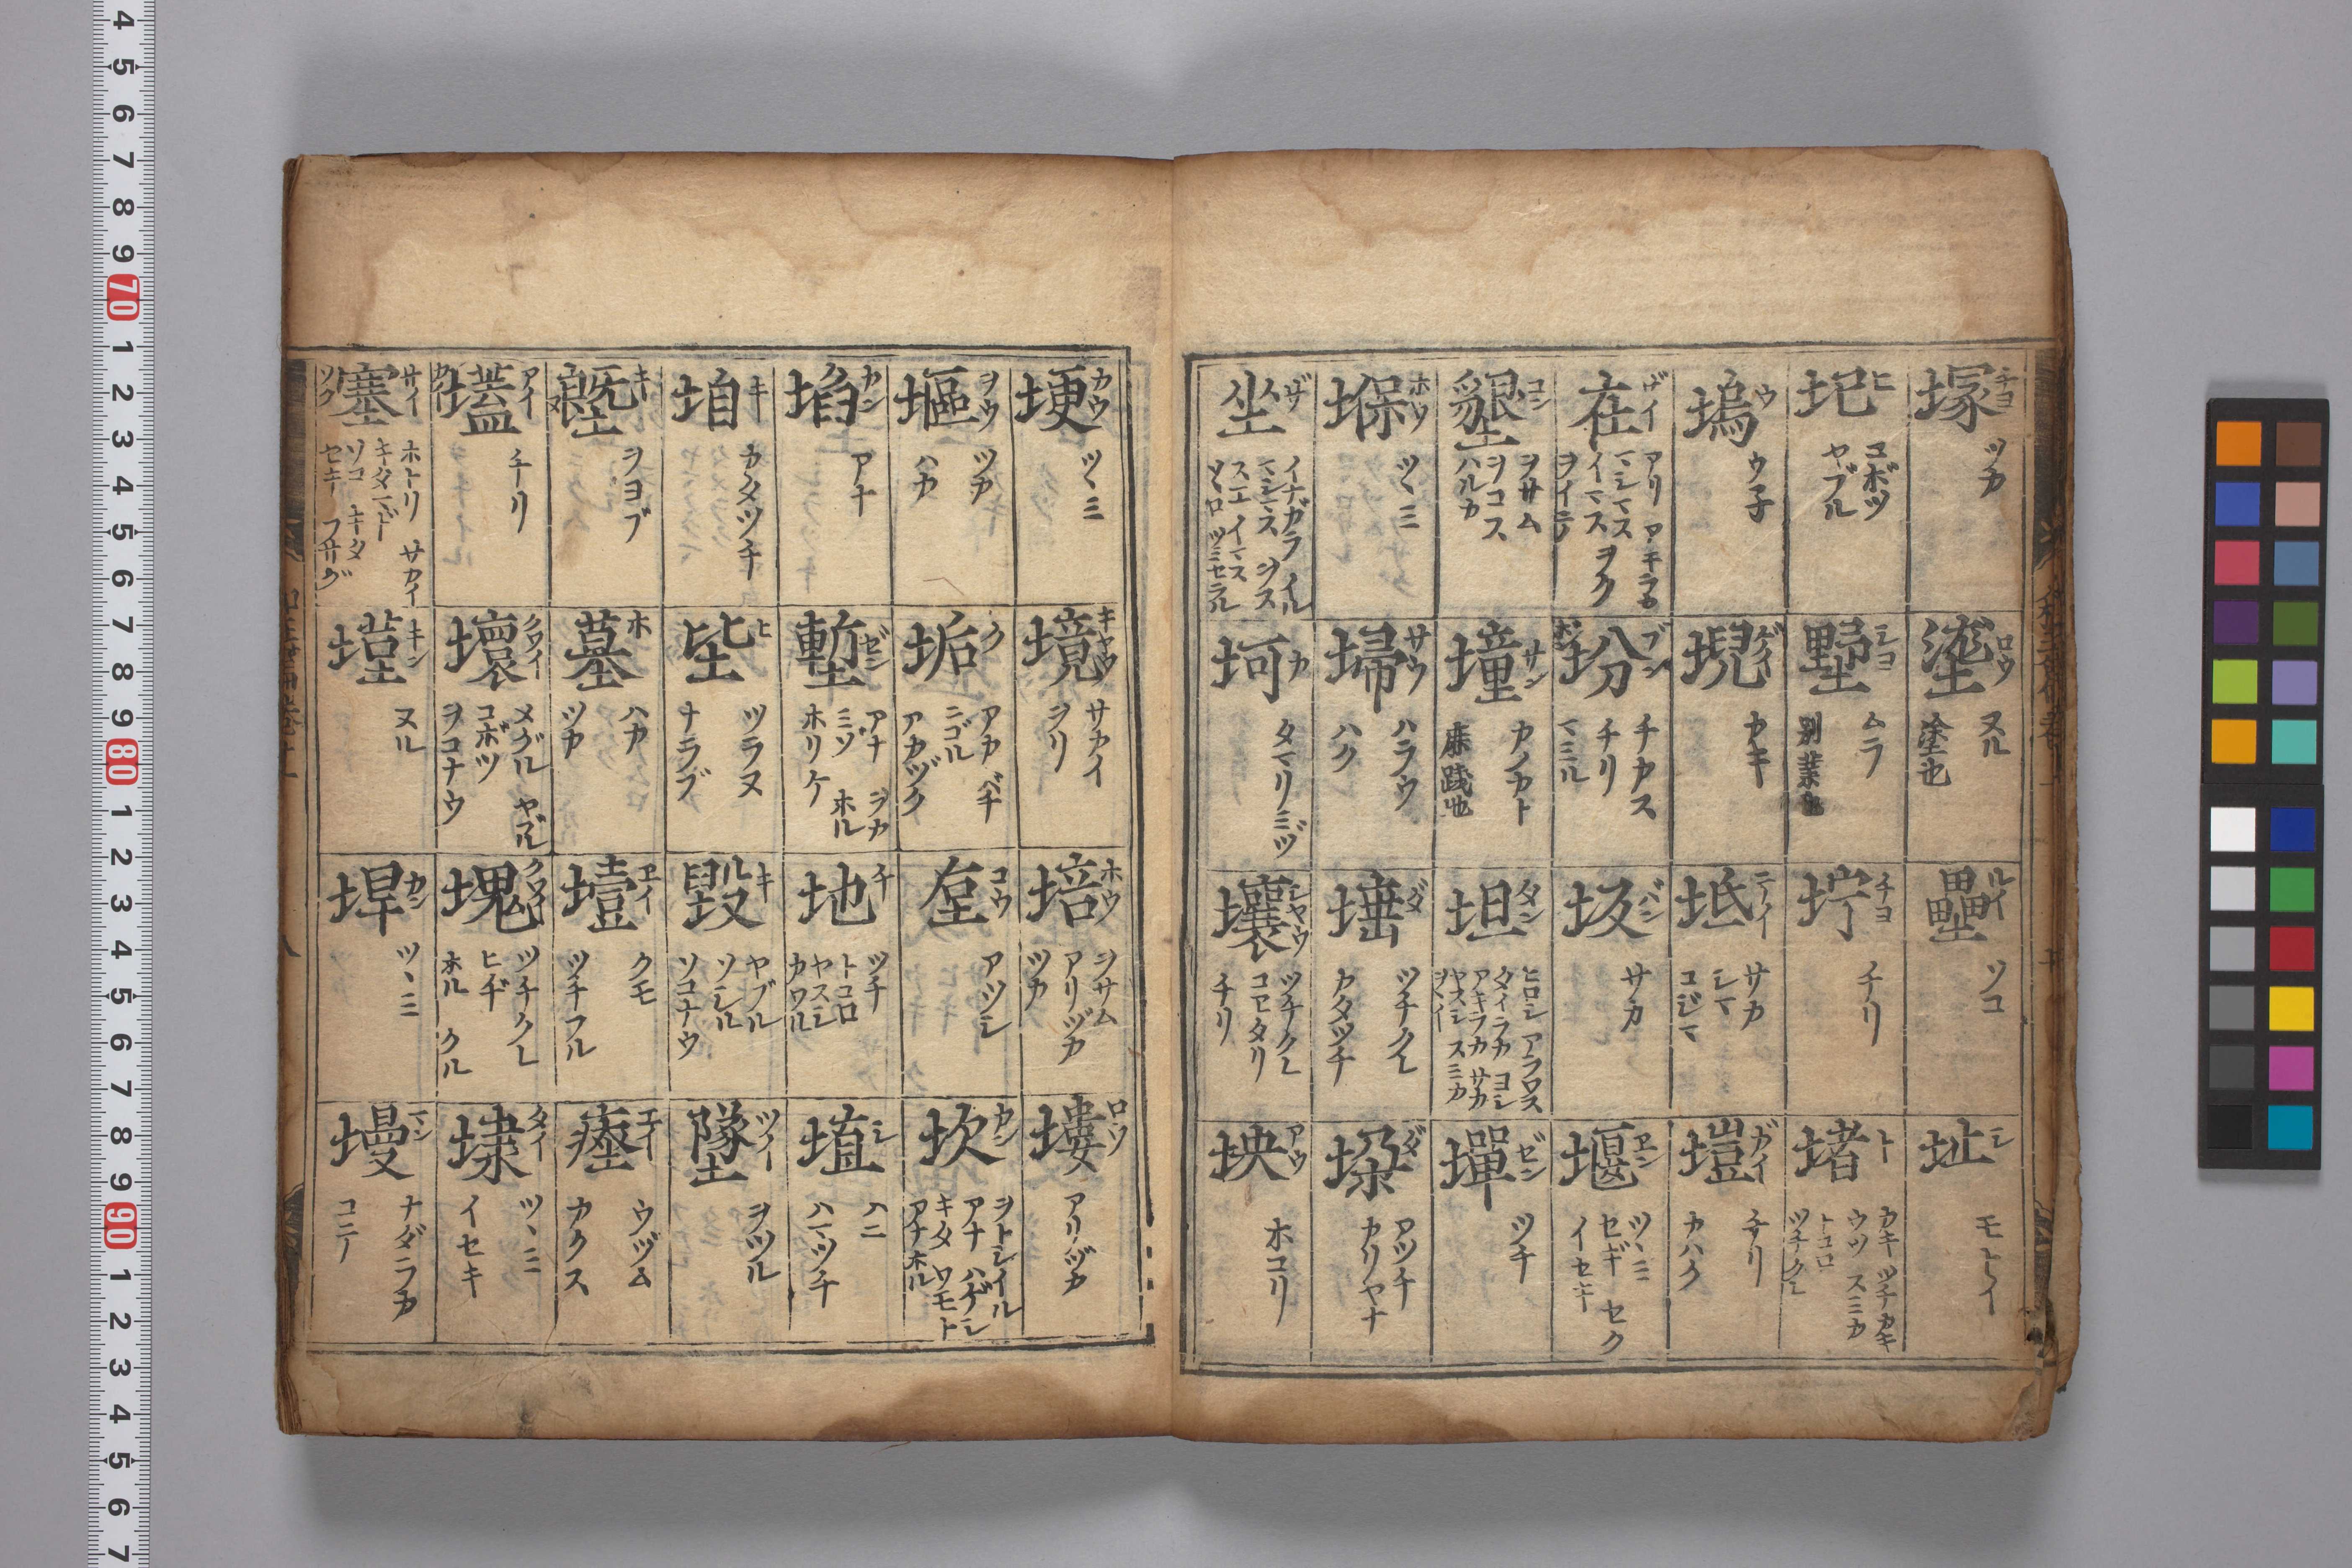 塚 チヨ ツカ
塗 ロウ ヌル 塗也
壘 ルイ ソコ
址 シ モトイ
圮 ヒ コボツ ヤブル
墅 シヨ ムラ 別業也
坾 チヨ チリ
堵 ト カキ ツチカキ ウツ スミカ トコロ ツチクレ
塢 ウ ウ子
堄 ゲイ カキ
坻 テイ サカ シマ コジマ
塏 ガイ チリ カハク
在 ザイ アリ アキラカ マシマス イマス ヲク
坋 フン チカス チリ マミル
坂 バン サカ
堰 エン ツヽミ セギ セク イセキ
墾 コン ヲサム ヲコス ハルカ
墥 サン 麻踐地
坦 タン ヒロシ アラワス タイラカ ヨシ アキラカ サカ ヤスシ スミカ
墠 ゼン ツチ
堢 ホウ ツヽミ
埽 サウ ハラウ ハク
埵 ダ ツチクレ カタツチ
垜 ダ アツチ カリヤナ
坐 ザ イナガラ イル マシマス ヲス スエ イマス
坷 カ タマリミヅ
壤 シヤウ ツチクレ コエタリ チリ
坱 アウ ホコリ
埂 カウ ツヽミ
境 キヤウ サカイ ヲリ
培 ホウ ヲサム アリヅカ ツカ
塿 ロウ アリヅカ
塸 ヲウ ツカ ハカ
垢 ク アカ ニゴル アカヅク
垕 コウ アツシ
坎 カン ヲトシイル アナ ハゲシ キタ ワモト アナホル
埳 カン アナ
塹 ゼン アナ ヲカ ミゾ ホル ホリケ
地 チ ツチ トコロ ヤスシ カワル
埴 シ ハニ ハマツチ
垍 キ カタツチ
坒 ヒ ツラヌ ナラブ
毀 キ ヤブル ソシル ソコナウ
墜 ツイ ヲツル
塈 キ ヲヨブ
墓 ホ ハカ ツカ
曀 エイ クモ ツチフル
瘞 エイ ウヅム カクス
壒 アイ チリ
壞 クワイ メグル ヤブル コボツ ヲコナウ
塊 クワイ ツチクレ ヒヂ ホル クル
埭 タイ ツヽミ イセキ
塞 サイ ソク ホトリ サカイ キタマド ソコ キタ セキ フサグ
墐 キン ヌル
垾 カン ツヽミ
墁 マン ナダラカ コテ